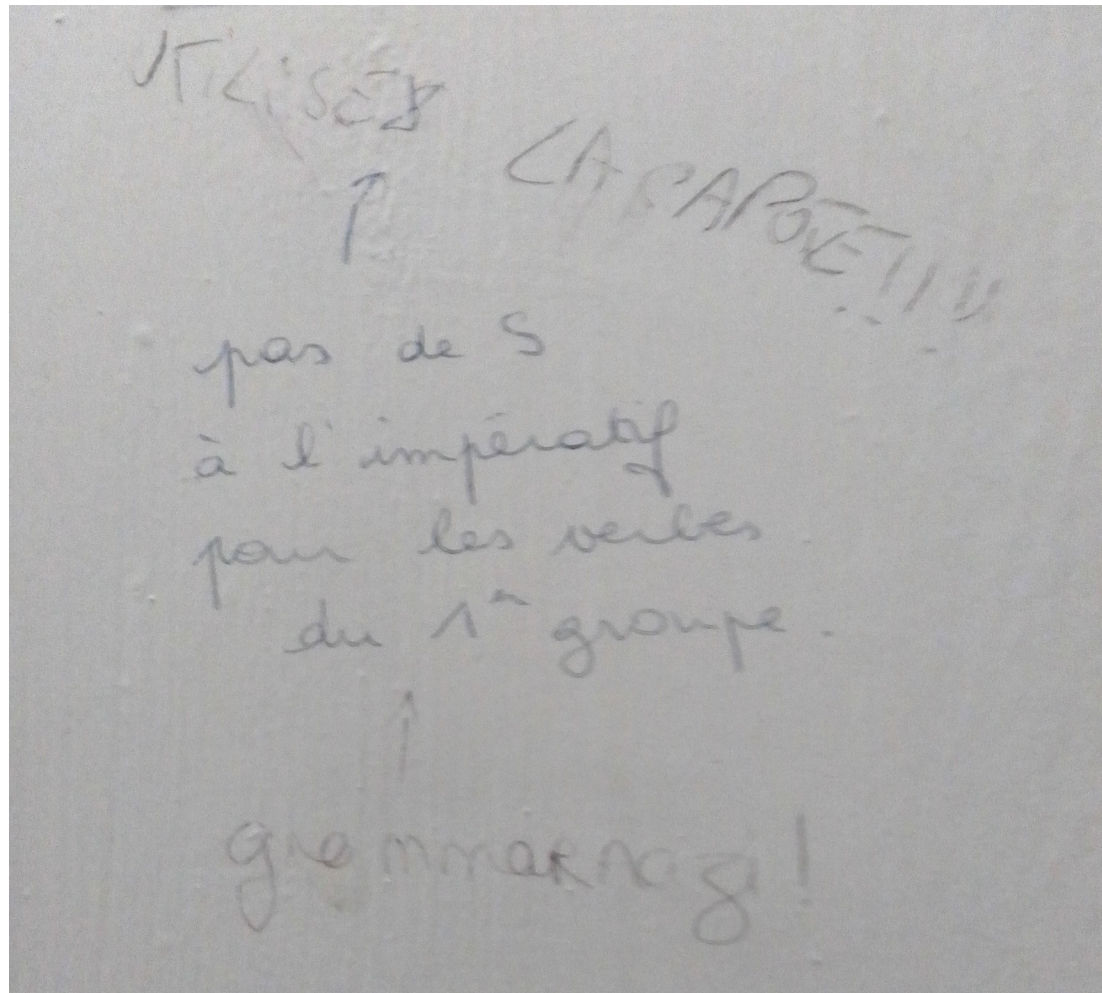 UTILISES
LA CAPOTE!!!!
↑
pas de S
à l'impératif
pour les verbes
du 1er groupe.
↑
grammarnazi!